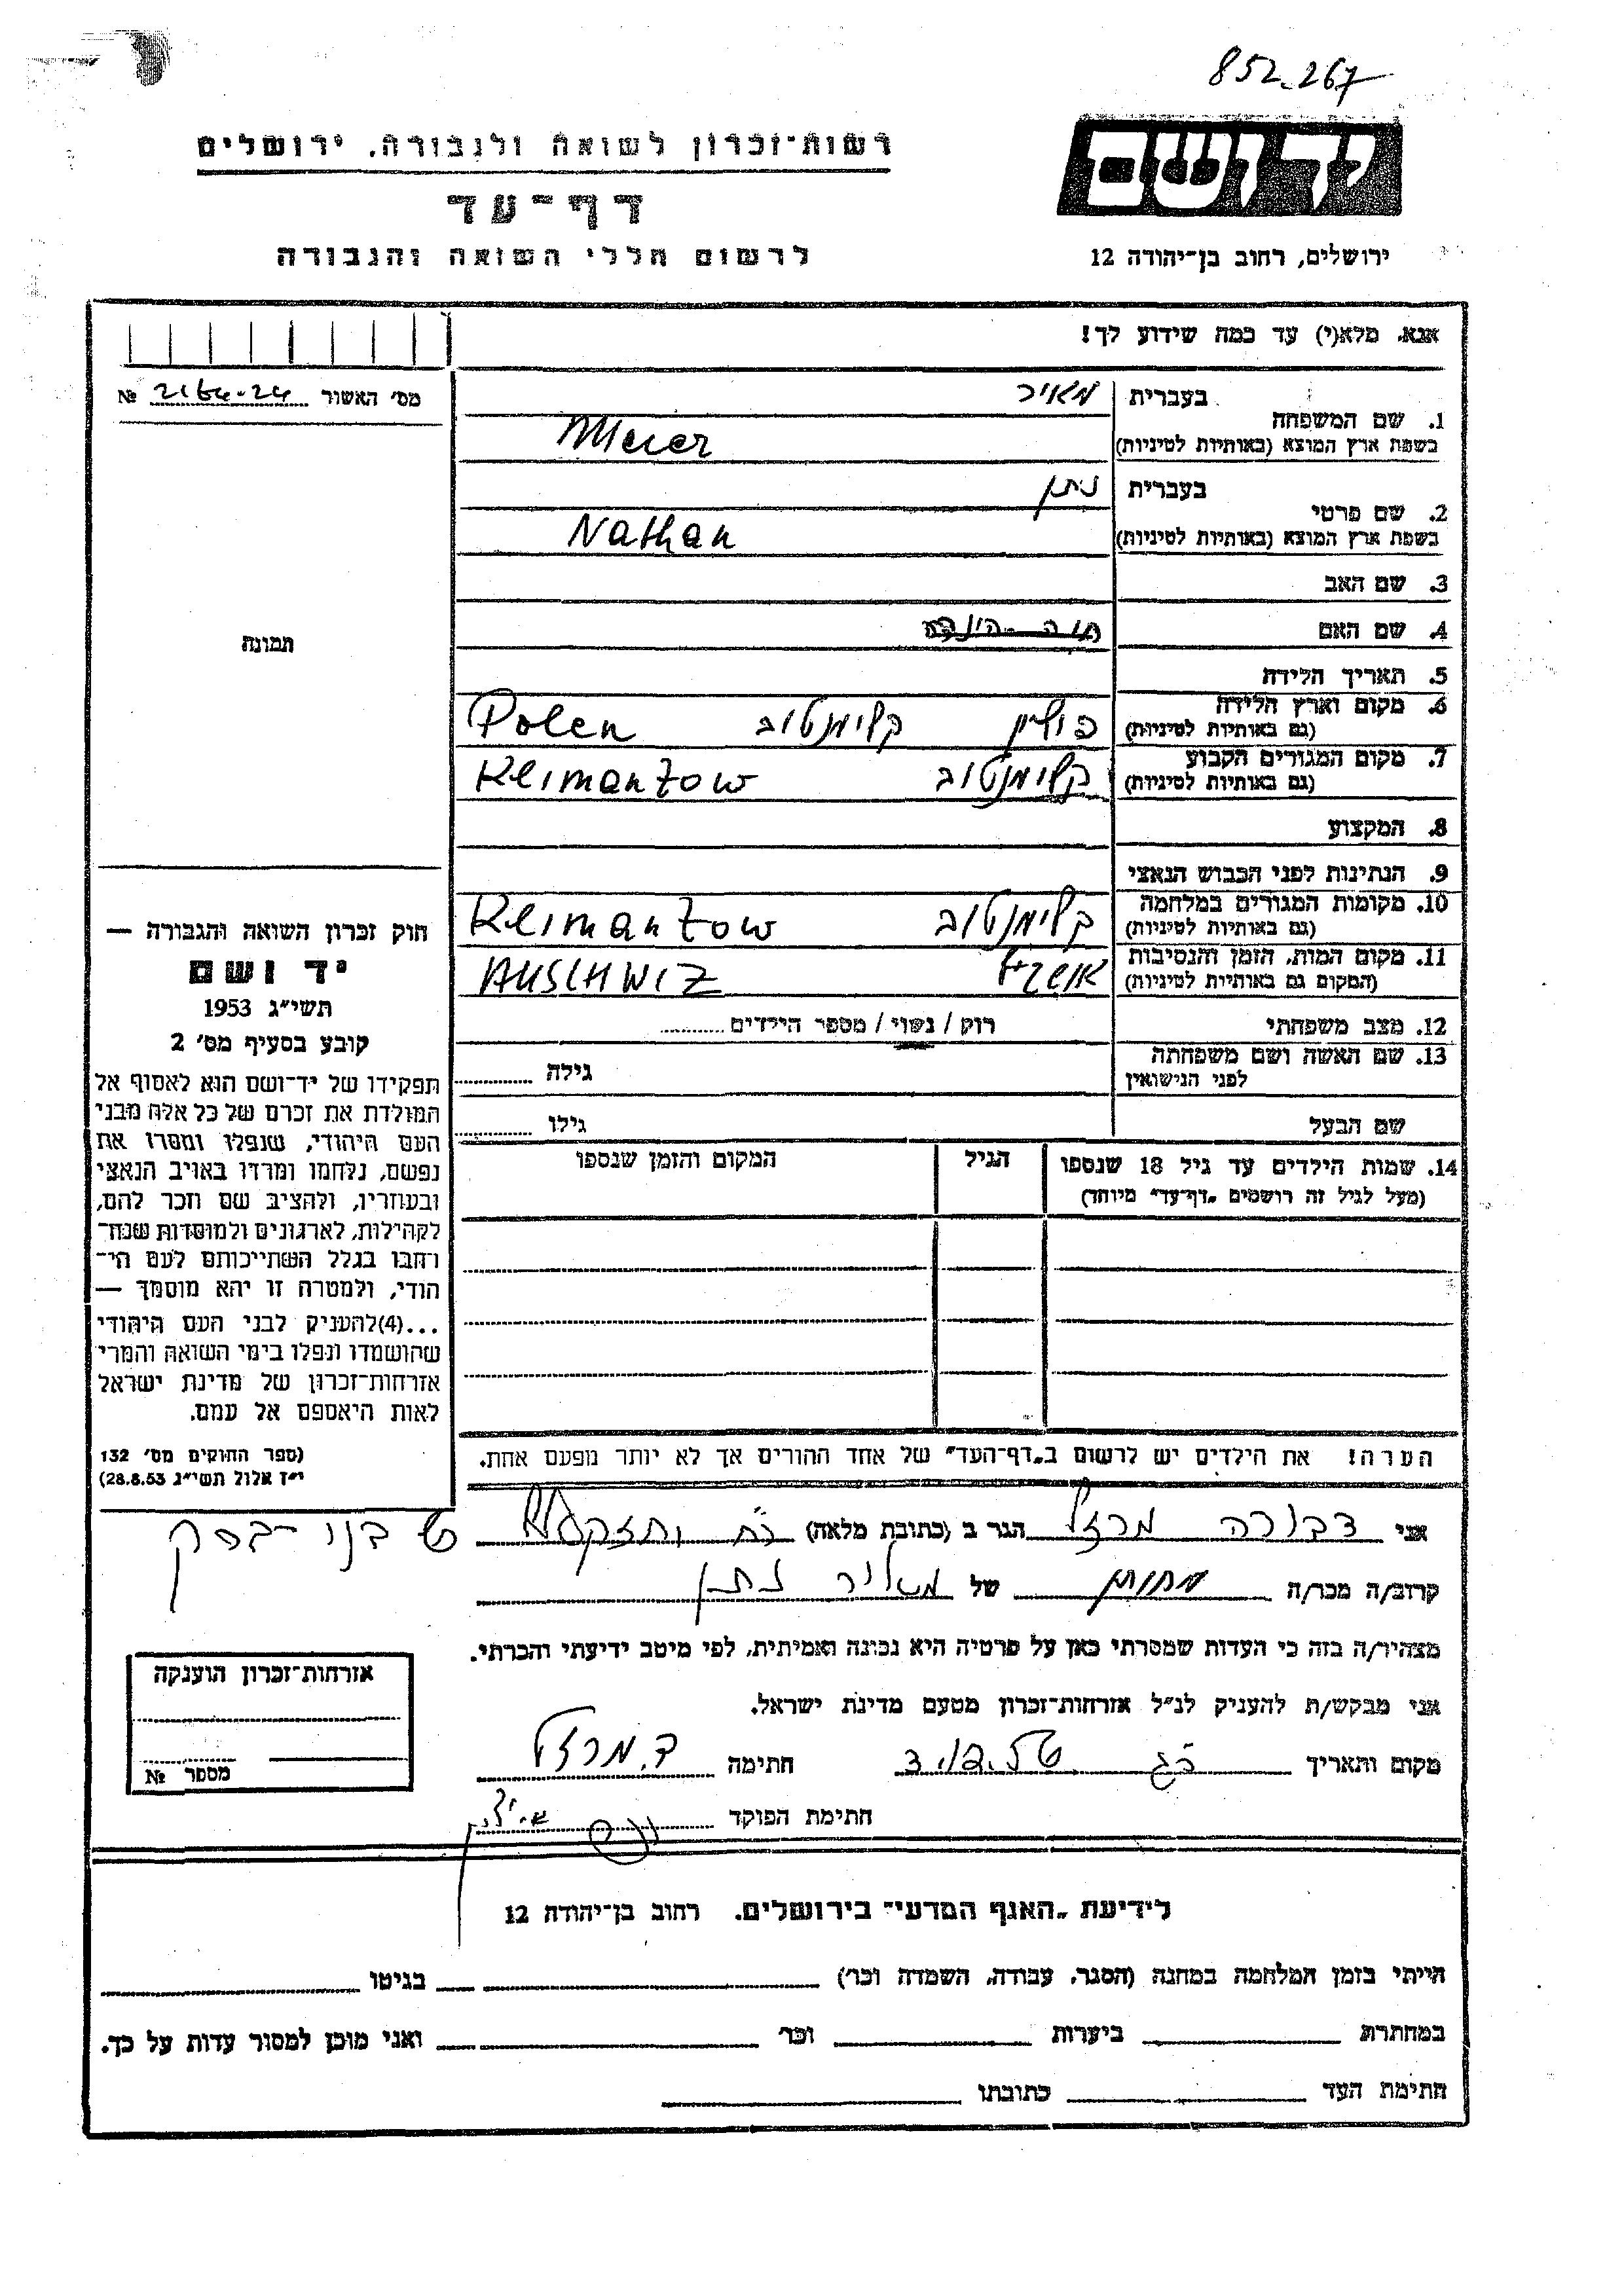 852-267
יד ושם
רשות־זכרון לשואה ולגבורה, ירושלים
דף־עד
לרשום חללי השואה והגבורה
ירושלים, רחוב בן־יהודה 12
אנא, מלא(י) עד כמה שידוע לך!
מס׳ האשור 2164-24 №
1. שם המשפחה בעברית מאיר
בשפת ארץ המוצא (באותיות לטיניות) Meier
2. שם פרטי בעברית נתן
בשפת ארץ המוצא (באותיות לטיניות) Nathan
3. שם האב
4. שם האם
תמונה
5. תאריך הלידה
6. מקום וארץ הלידה (גם באותיות לטיניות) פולין קלימנטוב Polen
7. מקום המגורים הקבוע (גם באותיות לטיניות) קלימנטוב Klimantow
8. המקצוע
9. הנתינות לפני הכבוש הנאצי
10. מקומות המגורים במלחמה (גם באותיות לטיניות) קלימנטוב Klimantow
11. מקום המות, הזמן והנסיבות (המקום גם באותיות לטיניות) AUSCHWIZ
12. מצב משפחתי רוק / נשוי / מספר הילדים
13. שם האשה ושם משפחתה לפני הנישואין גילה
שם הבעל גילו
14. שמות הילדים עד גיל 18 שנספו
(מעל לגיל זה רושמים „דף־עד״ מיוחד)
הגיל
המקום והזמן שנספו
הערה! את הילדים יש לרשום ב„דף־העד״ של אחד ההורים אך לא יותר מפעם אחת.
חוק זכרון השואה והגבורה —
יד ושם
תשי״ג 1953
קובע בסעיף מס׳ 2
תפקידו של יד־ושם הוא לאסוף אל
המולדת את זכרם של כל אלה מבני
העם היהודי, שנפלו ומסרו את
נפשם, נלחמו ומרדו באויב הנאצי
ובעוזריו, ולהציב שם וזכר להם,
לקהילות, לארגונים ולמוסדות שנח־
רבו בגלל השתייכותם לעם הי־
הודי, ולמטרה זו יהא מוסמך —
...(4)להעניק לבני העם היהודי
שהושמדו ונפלו בימי השואה והמרי
אזרחות־זכרון של מדינת ישראל
לאות היאספם אל עמם.
(ספר החוקים מס׳ 132
י״ז אלול תשי״ג 28.8.53)
אני דבורה מרזל הגר ב (כתובת מלאה)
קרוב/ה מכר/ה של מאיר נתן
מצהיר/ה בזה כי העדות שמסרתי כאן על פרטיה היא נכונה ואמיתית, לפי מיטב ידיעתי והכרתי.
אני מבקש/ת להעניק לנ״ל אזרחות־זכרון מטעם מדינת ישראל.
מקום ותאריך חתימה ד. מרזל
חתימת הפוקד
אזרחות־זכרון הוענקה
מספר №
לידיעת „האגף המדעי״ בירושלים. רחוב בן־יהודה 12
הייתי בזמן המלחמה במחנה (הסגר, עבודה, השמדה וכו׳) בגיטו
במחתרת ביערות וכו׳ ואני מוכן למסור עדות על כך.
חתימת העד כתובתו